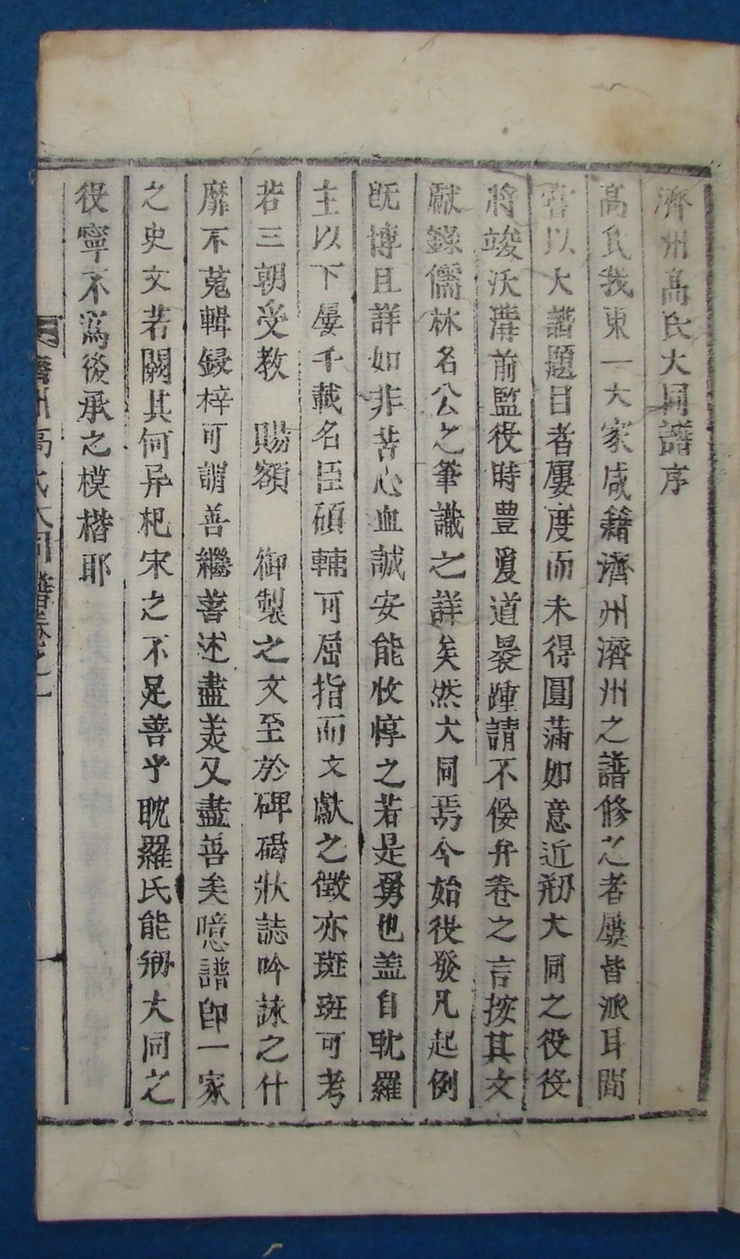 濟州高氏大同譜序
高氏我東一大家咸籍濟州濟州之譜修之者屢皆派耳間
嘗以大譜題目者屢度而未得圓滿如意近刱大同之役役
將竣沃溝前監役時豊夏道晏踵請不佞弁卷之言按其文
獻錄儒林名公之筆識之詳矣然大同焉今始役發凡起例
旣博且詳如非苦心血誠安能收惇之若是勇也盖自耽羅
主以下屢千載名臣碩輔可屈指而文獻之徵亦斑斑可考
若三朝受教　賜額　御製之文至於碑碣狀誌吟詠之什
靡不蒐輯録梓可謂善繼善述盡美又盡善矣噫譜卽一家
之史文若闕其何异杞宋之不足善乎耽羅氏能刱大同之
役寧不爲後承之模楷耶
濟州高氏大同譜卷之一